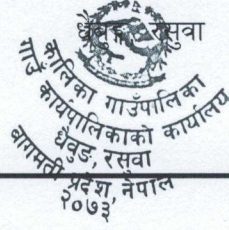 धैवुङ, रसुवा
कालिका गाउँपालिका
गाउँ कार्यपालिकाको कार्यालय
धैवुङ, रसुवा
बागमती प्रदेश, नेपाल
२०७३